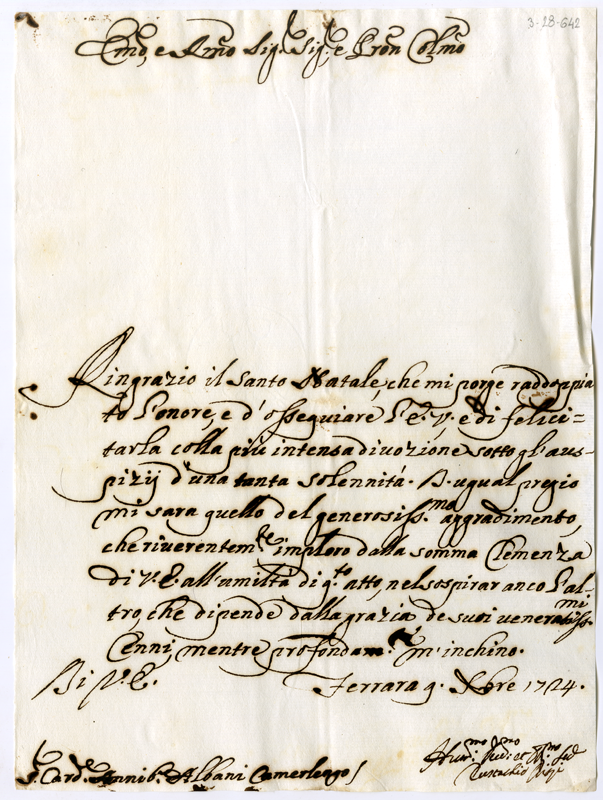 3-28-642
Em̃o, e Rm̃o Sig.r Sig.r e Prõn Colm̃o
Ringrazio il Santo Natale, che mi porge raddoppia
to l'onore, e d'ossequiare l'E. V., e di felici=
tarla colla più intensa divozione sotto gl'aus-
pizij d'una tanta solennità. D. ugual pregio
mi sara quello del generosiss.mo aggradimento,
che riverentem.te imploro dalla somma Clemenza
di V. E. all'umiltà di q.to atto, nel sospirar anco l'al-
tro, che dipende dalla grazia de suoi veneratiss.mi
Cenni, mentre profondam.te m'inchino.
Di V. E. Ferrara 9. Xbre 1724.
S. Card.e Annib.e Albani Camerlengo
Hum.mo Dev.mo et Obl.mo
Eustachio